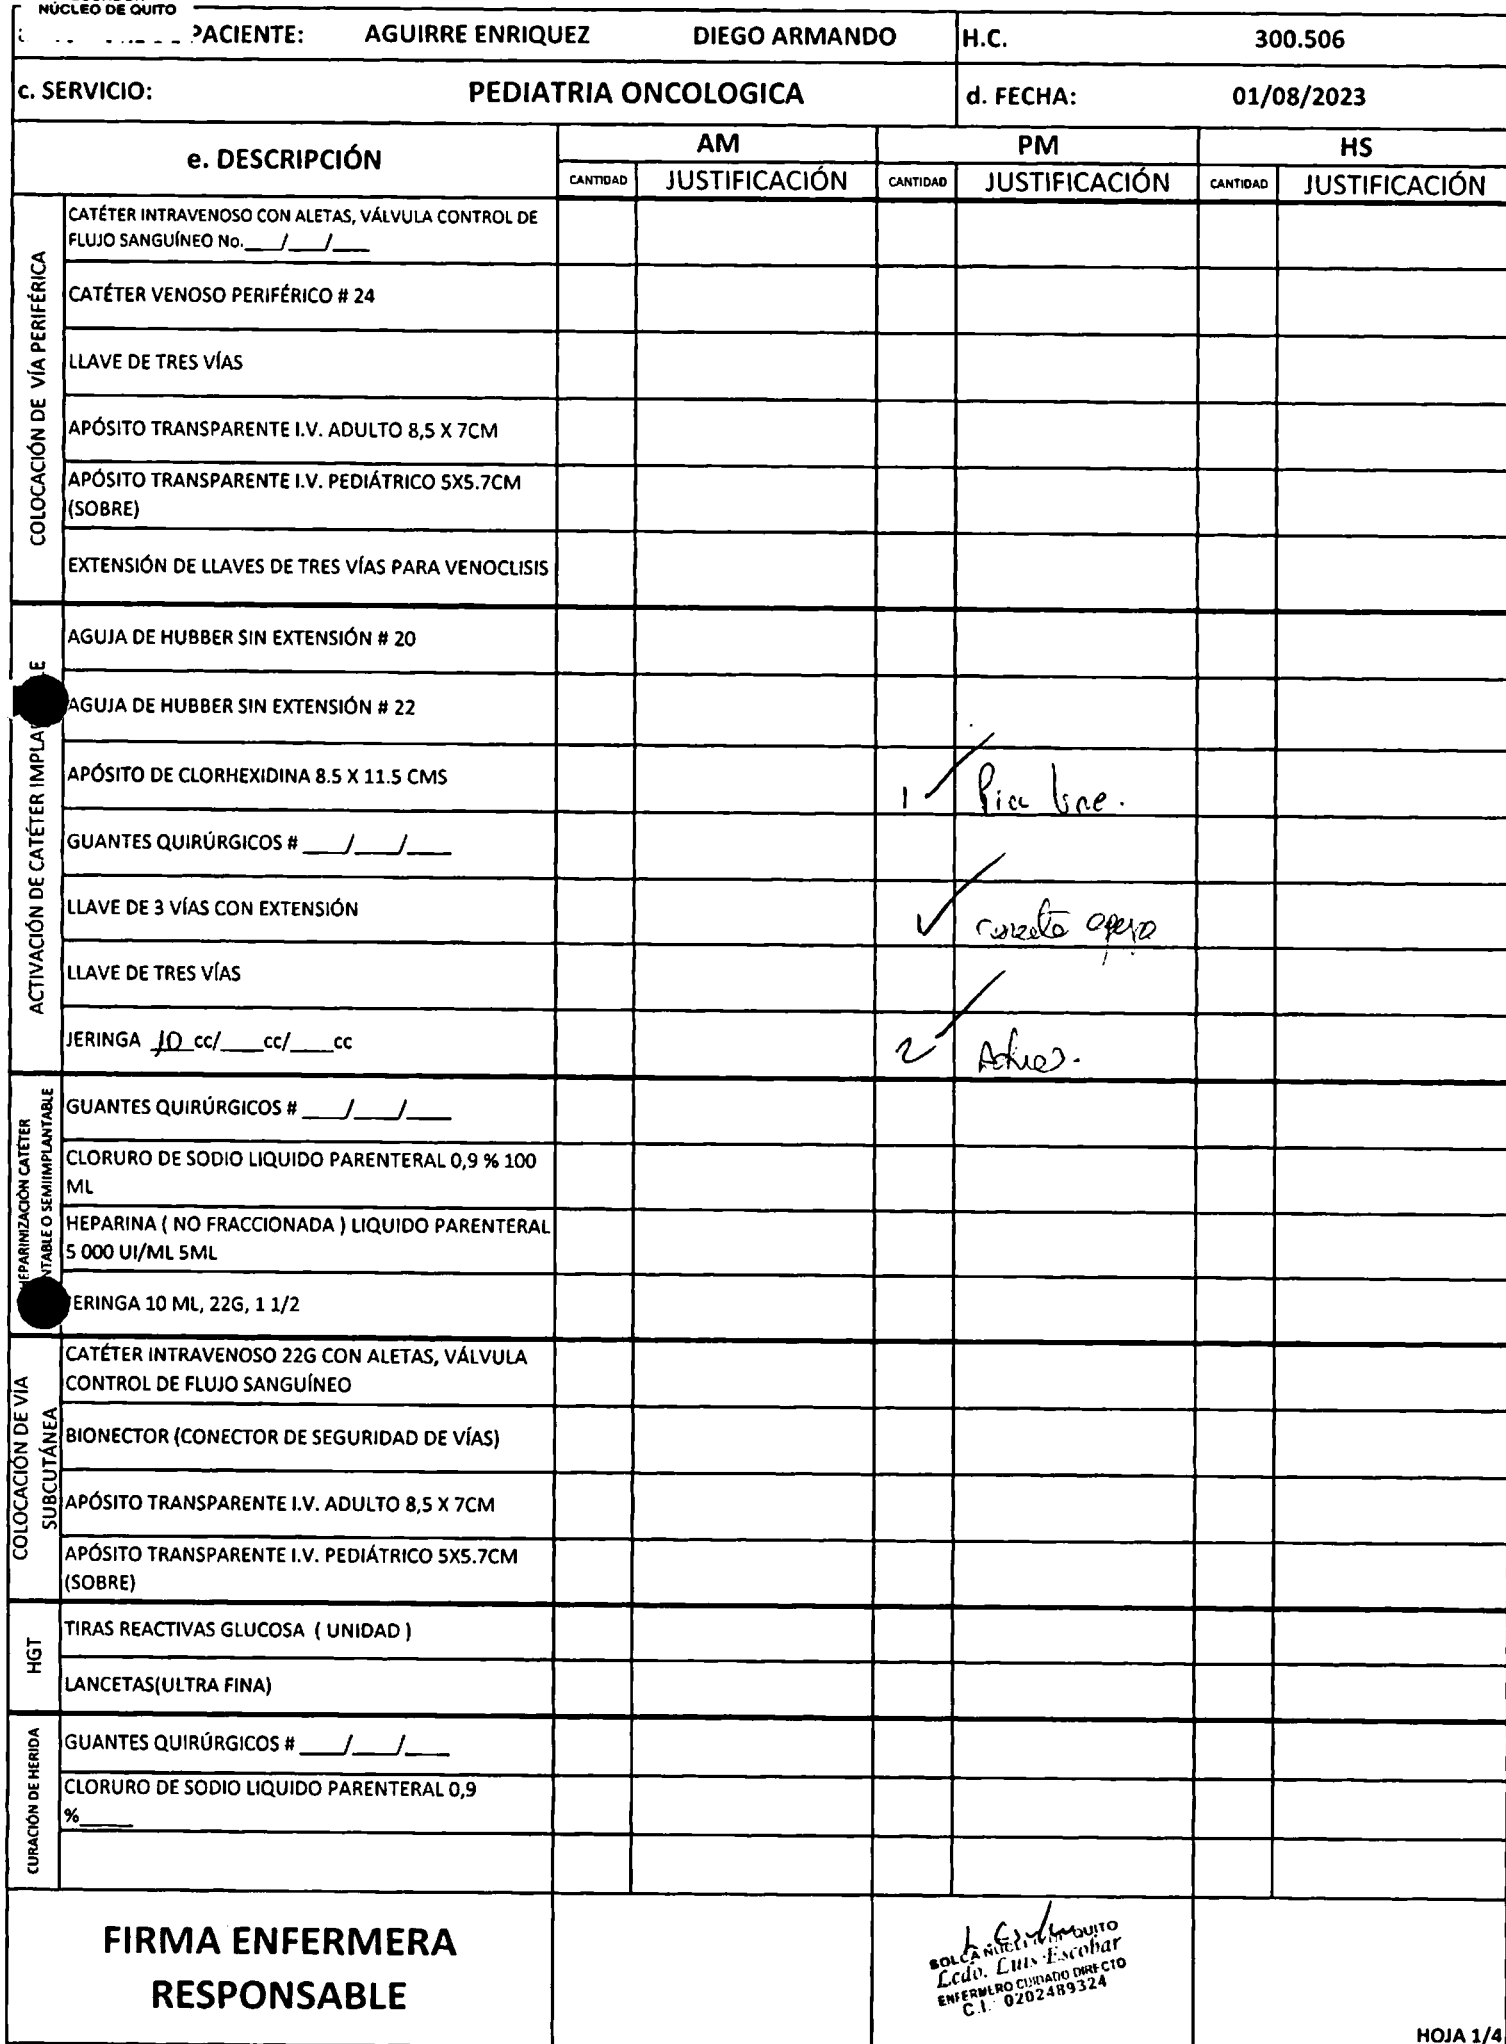 NÚCLEO DE QUITO
PACIENTE: AGUIRRE ENRIQUEZ DIEGO ARMANDO H.C. 300.506
c. SERVICIO: PEDIATRIA ONCOLOGICA d. FECHA: 01/08/2023
e. DESCRIPCIÓN AM PM HS
CANTIDAD JUSTIFICACIÓN CANTIDAD JUSTIFICACIÓN CANTIDAD JUSTIFICACIÓN
COLOCACIÓN DE VÍA PERIFÉRICA
CATÉTER INTRAVENOSO CON ALETAS, VÁLVULA CONTROL DE
FLUJO SANGUÍNEO No.___/___/___
CATÉTER VENOSO PERIFÉRICO # 24
LLAVE DE TRES VÍAS
APÓSITO TRANSPARENTE I.V. ADULTO 8,5 X 7CM
APÓSITO TRANSPARENTE I.V. PEDIÁTRICO 5X5.7CM
(SOBRE)
EXTENSIÓN DE LLAVES DE TRES VÍAS PARA VENOCLISIS
ACTIVACIÓN DE CATÉTER
AGUJA DE HUBBER SIN EXTENSIÓN # 20
AGUJA DE HUBBER SIN EXTENSIÓN # 22
APÓSITO DE CLORHEXIDINA 8.5 X 11.5 CMS 1
GUANTES QUIRÚRGICOS # ___/___/___
LLAVE DE 3 VÍAS CON EXTENSIÓN
LLAVE DE TRES VÍAS
JERINGA 10 cc/___cc/___cc 2
HEPARINIZACIÓN CATÉTER
SEMIIMPLANTABLE
GUANTES QUIRÚRGICOS # ___/___/___
CLORURO DE SODIO LIQUIDO PARENTERAL 0,9 % 100
ML
HEPARINA ( NO FRACCIONADA ) LIQUIDO PARENTERAL
5 000 UI/ML 5ML
ERINGA 10 ML, 22G, 1 1/2
COLOCACIÓN DE VIA
SUBCUTÁNEA
CATÉTER INTRAVENOSO 22G CON ALETAS, VÁLVULA
CONTROL DE FLUJO SANGUÍNEO
BIONECTOR (CONECTOR DE SEGURIDAD DE VÍAS)
APÓSITO TRANSPARENTE I.V. ADULTO 8,5 X 7CM
APÓSITO TRANSPARENTE I.V. PEDIÁTRICO 5X5.7CM
(SOBRE)
HGT
TIRAS REACTIVAS GLUCOSA ( UNIDAD )
LANCETAS(ULTRA FINA)
CURACIÓN DE HERIDA
GUANTES QUIRÚRGICOS # ___/___/___
CLORURO DE SODIO LIQUIDO PARENTERAL 0,9
%____
FIRMA ENFERMERA
RESPONSABLE
SOLCA QUITO
Lcdo. Luis Escobar
ENFERMERO CUIDADO DIRECTO
C.I. 0202489324
HOJA 1/4